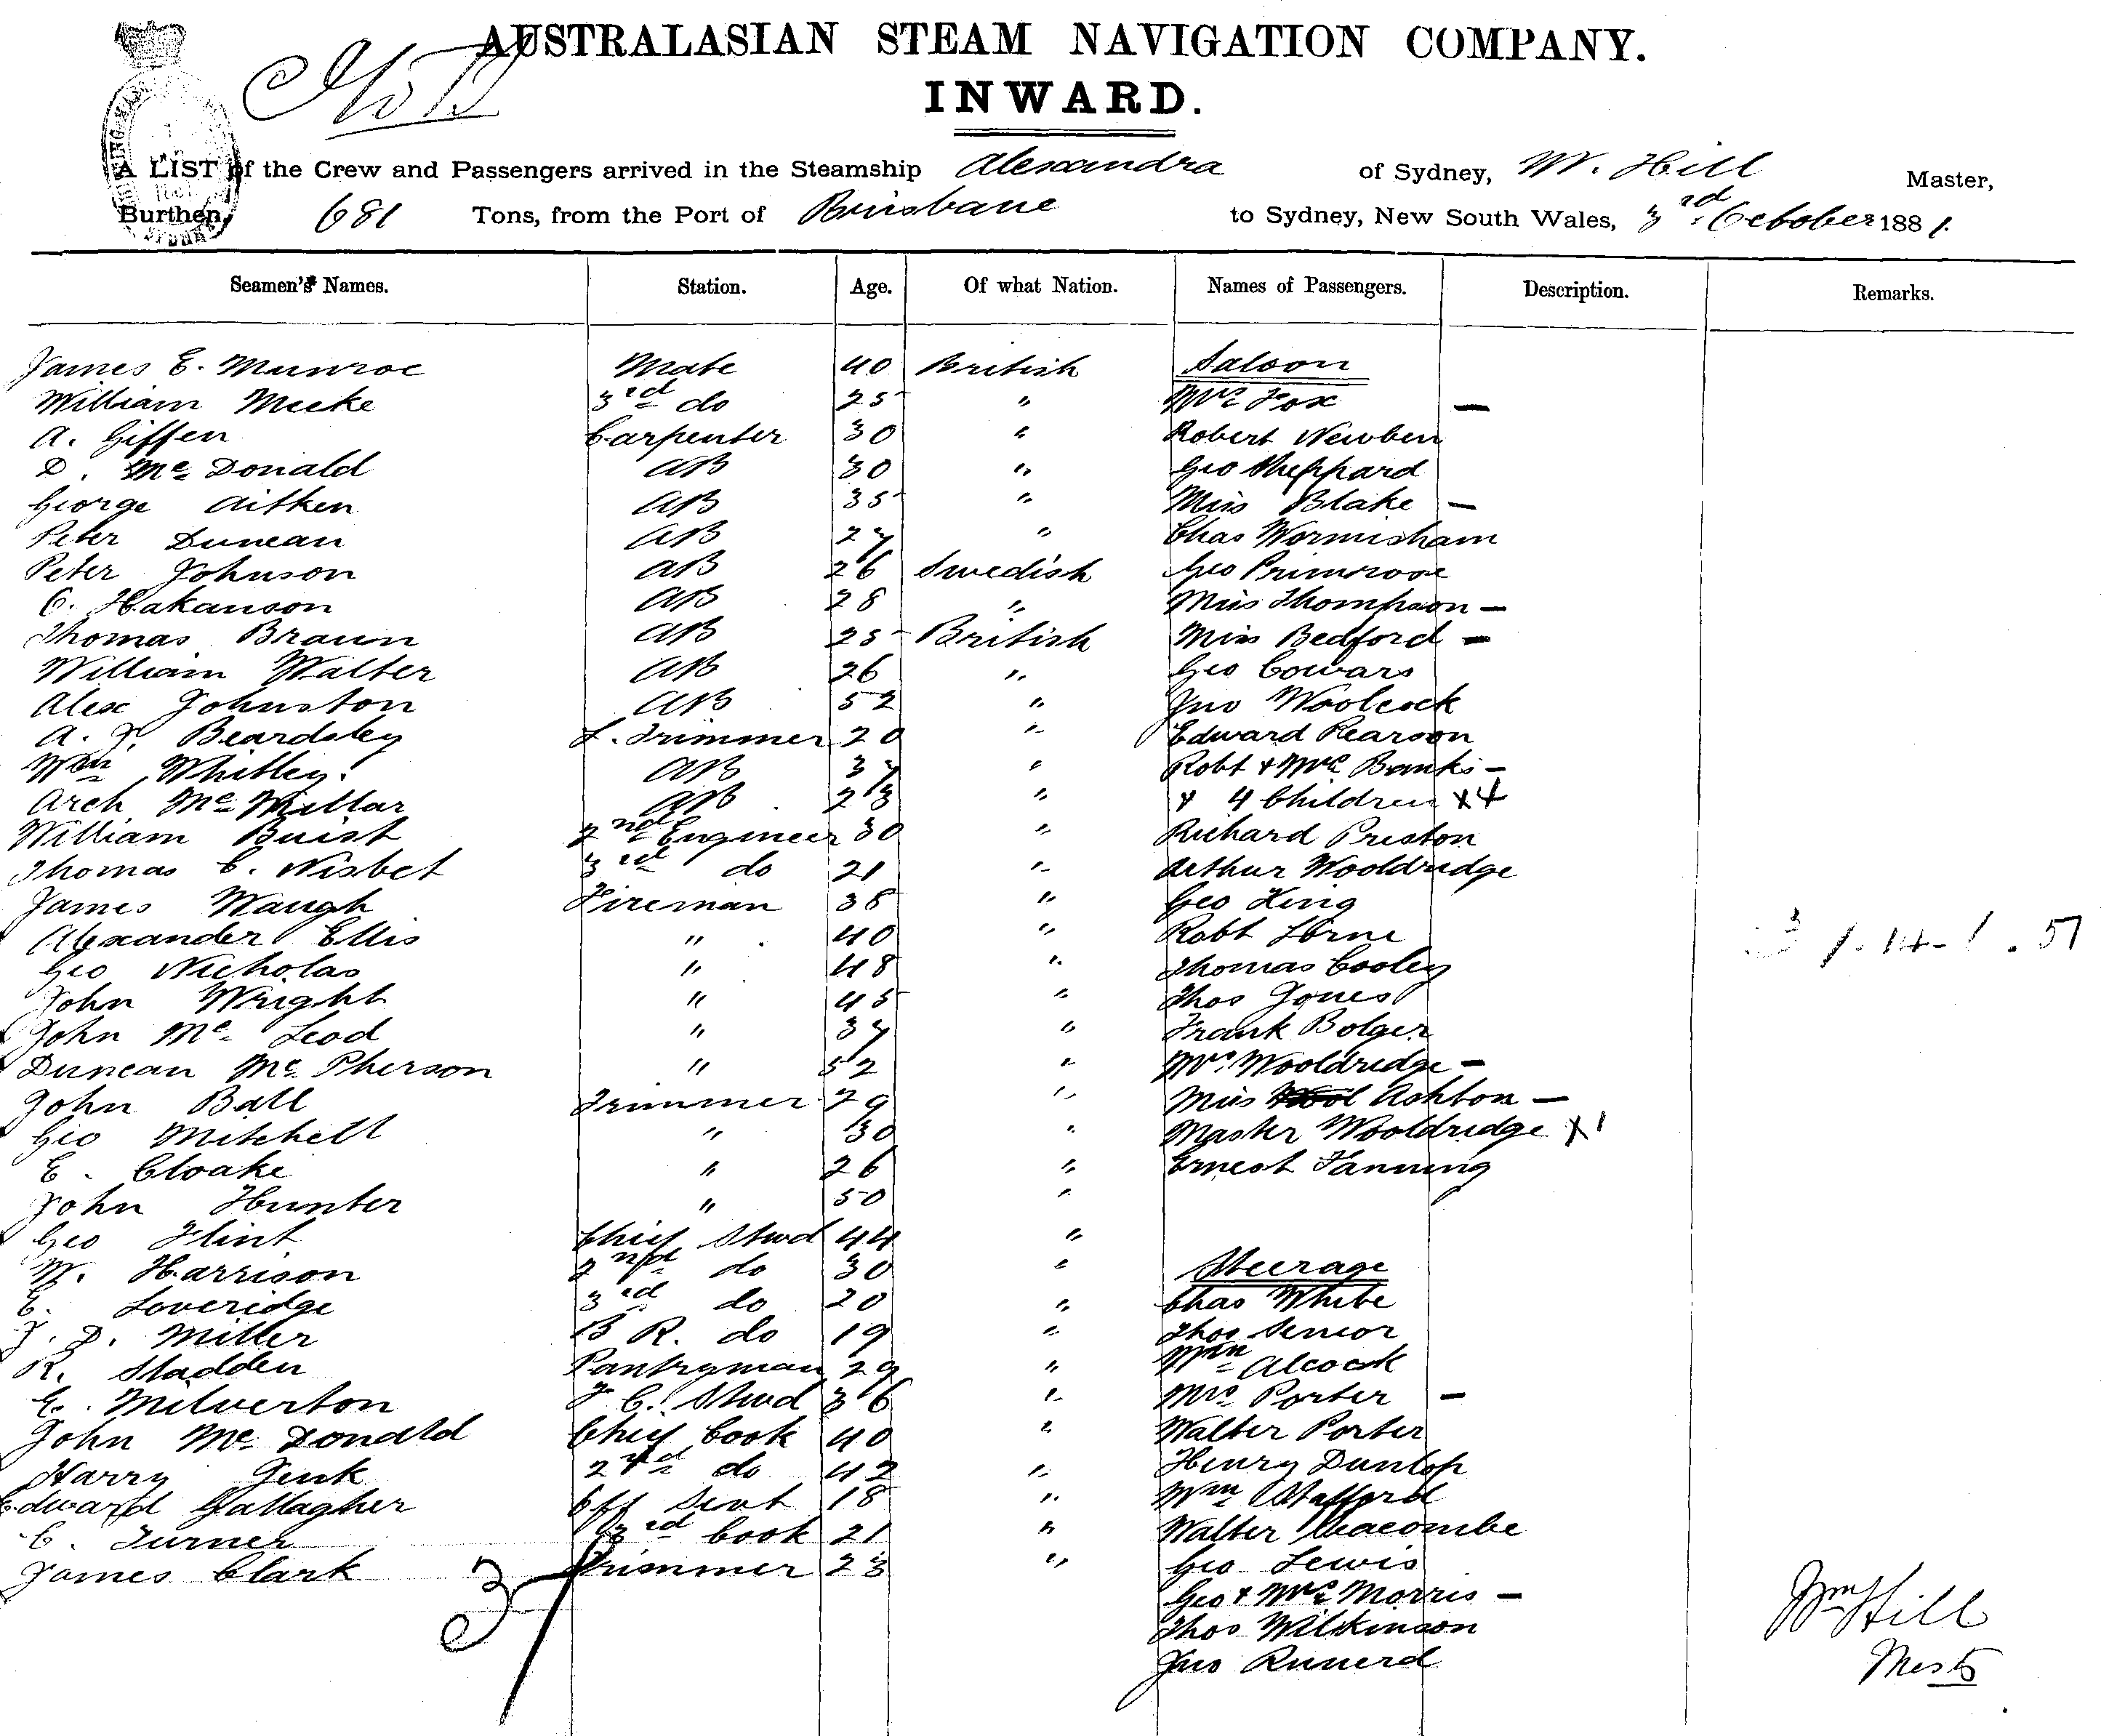 AUSTRALASIAN STEAM NAVIGATION COMPANY.
INWARD.
A LIST of the Crew and Passengers arrived in the Steamship Alexandra of Sydney, W. Hill Master,
Burthen, 681 Tons, from the Port of Brisbane to Sydney, New South Wales, 3rd October 1881.
Seamen's Names. Station. Age. Of what Nation. Names of Passengers. Description. Remarks.
James E. Munroe Mate 40 British Saloon
William Meeke 3rd do 25 " Mrs Fox —
A. Giffen Carpenter 30 " Robert Newben
D. McDonald AB 30 " Geo Sheppard
George Aitken AB 35 " Miss Blake —
Peter Duncan AB 27 " Chas Wormisham
Peter Johnson AB 26 Swedish Geo Primrose
C. Hakanson AB 28 " Miss Thompson —
Thomas Braun AB 25 British Miss Bedford —
William Walter AB 26 " Geo Cowars
Alex Johnston AB 52 " Jno Woolcock
A. J. Beardsley L. Trimmer 20 " Edward Pearson
Wm Whitley. AB 37 " Robt & Mrs Banks —
Arch McMillar AB 23 " & 4 Children x4
William Buist 2nd Engineer 30 " Richard Preston
Thomas C. Nisbet 3rd do 21 " Arthur Wooldridge
James Waugh Fireman 38 " Geo King
Alexander Ellis " 40 " Robt Lorne
Geo Nicholas " 48 " Thomas Cooley
John Wright " 45 " Thos Jones
John McLeod " 37 " Frank Bolger
Duncan McPherson " 52 " Mrs Wooldridge —
John Ball Trimmer 29 " Miss Ashton —
Geo Mitchell " 30 " Master Wooldridge x1
E. Cloake " 26 " Ernest Fanning
John Hunter " 50 "
Geo Flint Chief Stwd 44 "
W. Harrison 2nd do 30 " Steerage
E. Loveridge 3rd do 20 " Chas White
J. D. Miller B R. do 19 " Thos Senior
R. Sladden Pantryman 29 " Wm Alcock
E. Milverton F C. Stwd 36 " Mrs Porter —
John McDonald Chief Cook 40 " Walter Porter
Harry Jenk 2nd do 42 " Henry Dunlop
Edward Gallagher Off Sevt 18 " Wm Stafford
C. Turner 3rd Cook 21 " Walter
James Clark Trimmer 23 " Geo Lewis
37
Geo & Mrs Morris —
Thos Wilkinson
Jno Runerd
Wm Hill